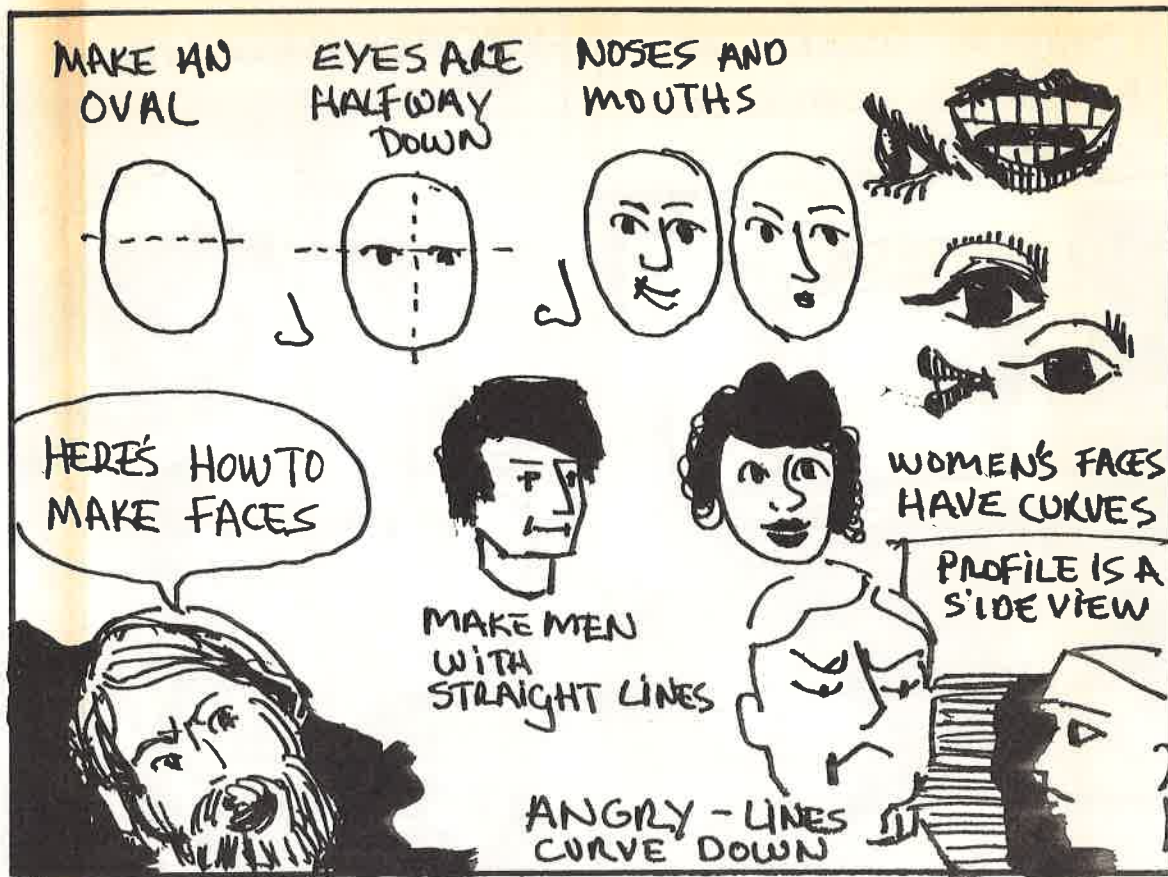 MAKE AN
OVAL
EYES ARE
HALFWAY
DOWN
NOSES AND
MOUTHS
HERE'S HOW TO
MAKE FACES
MAKE MEN
WITH
STRAIGHT LINES
WOMEN'S FACES
HAVE CURVES
PROFILE IS A
SIDE VIEW
ANGRY - LINES
CURVE DOWN